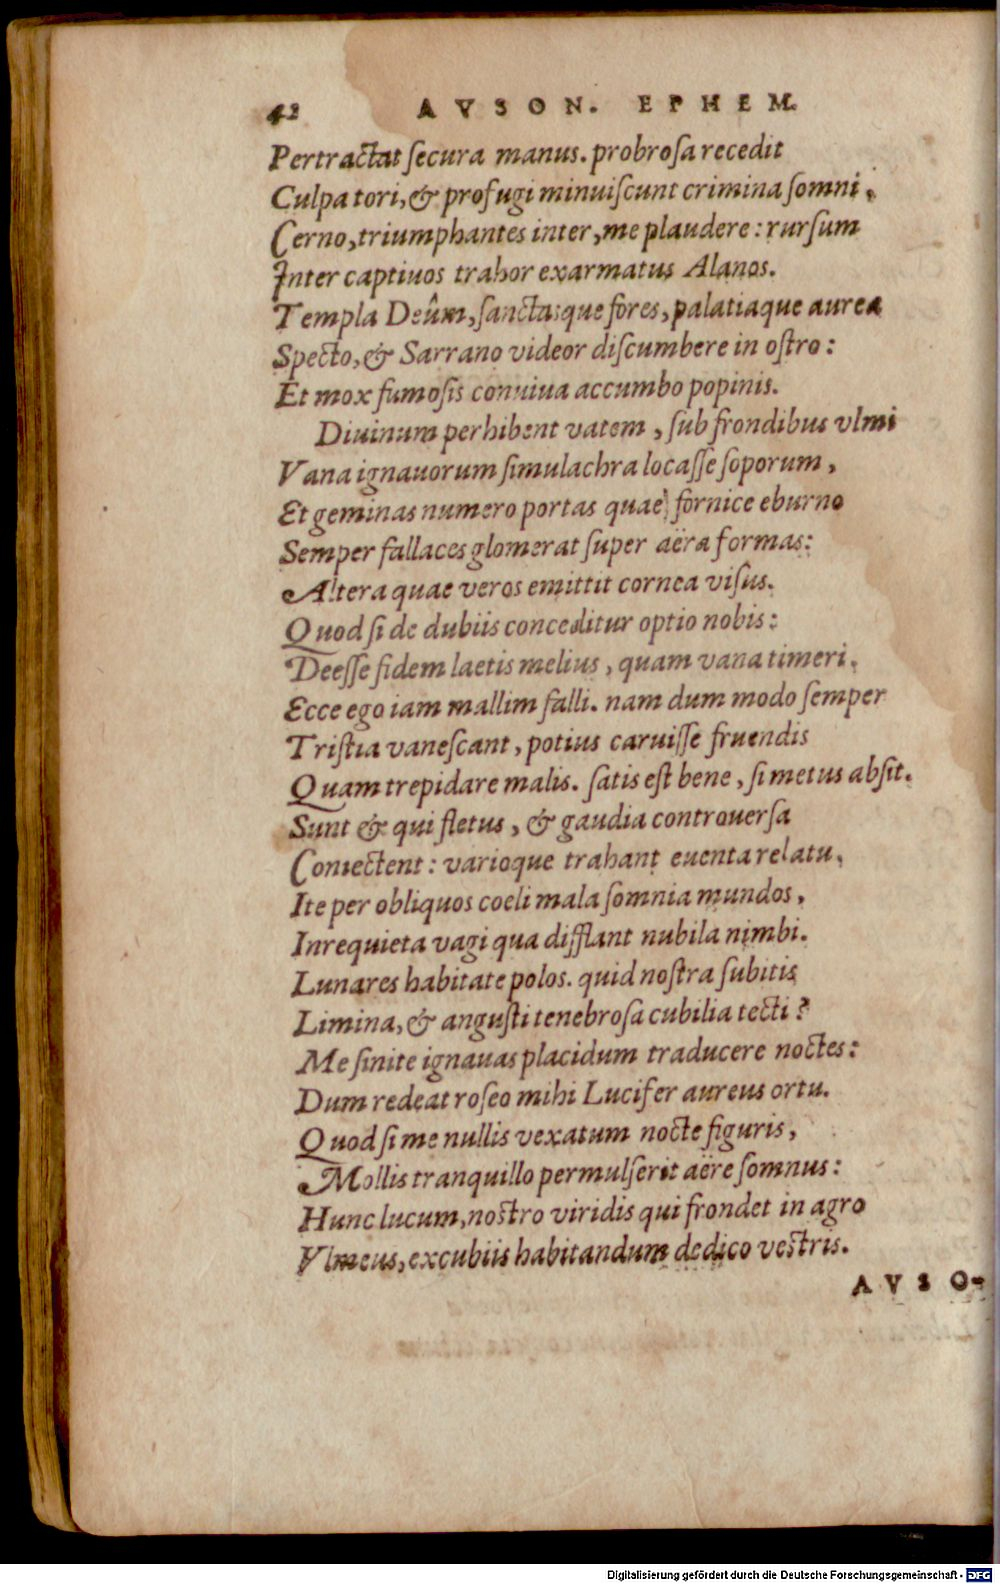 42 AVSON. EPHEM.
Pertractat ſecura manus. probroſa recedit
Culpa tori, & profugi minuiſcunt crimina ſomni.
Cerno, triumphantes inter, me plaudere: rurſum
Inter captiuos trahor exarmatus Alanos.
Templa Deûm, ſanctasque fores, palatiaque aurea
Specto, & Sarrano videor diſcumbere in oſtro:
Et mox fumoſis conuiua accumbo popinis.
Diuinum perhibent vatem, ſub frondibus vlmi
Vana ignauorum ſimulachra locaſſe ſoporum,
Et geminas numero portas quae fornice eburno
Semper fallaces glomerat ſuper aëra formas:
Altera quae veros emittit cornea viſus.
Quod ſi de dubiis conceditur optio nobis:
Deeſſe fidem laetis melius, quam vana timeri.
Ecce ego iam mallim falli. nam dum modo ſemper
Triſtia vaneſcant, potius caruiſſe fruendis
Quam trepidare malis. ſatis eſt bene, ſi metus abſit.
Sunt & qui fletus, & gaudia controuerſa
Coniectent: varioque trahant euenta relatu.
Ite per obliquos coeli mala ſomnia mundos,
Inrequieta vagi qua difflant nubila nimbi.
Lunares habitate polos. quid noſtra ſubitis
Limina, & anguſti tenebroſa cubilia tecti?
Me ſinite ignauas placidum traducere noctes:
Dum redeat roſeo mihi Lucifer aureus ortu.
Quod ſi me nullis vexatum nocte figuris,
Mollis tranquillo permulſerit aëre ſomnus:
Hunc lucum, noſtro viridis qui frondet in agro
Vlmeus, excubiis habitandum dedico veſtris.
AVSO-
Digitalisierung gefördert durch die Deutsche Forschungsgemeinschaft - DFG